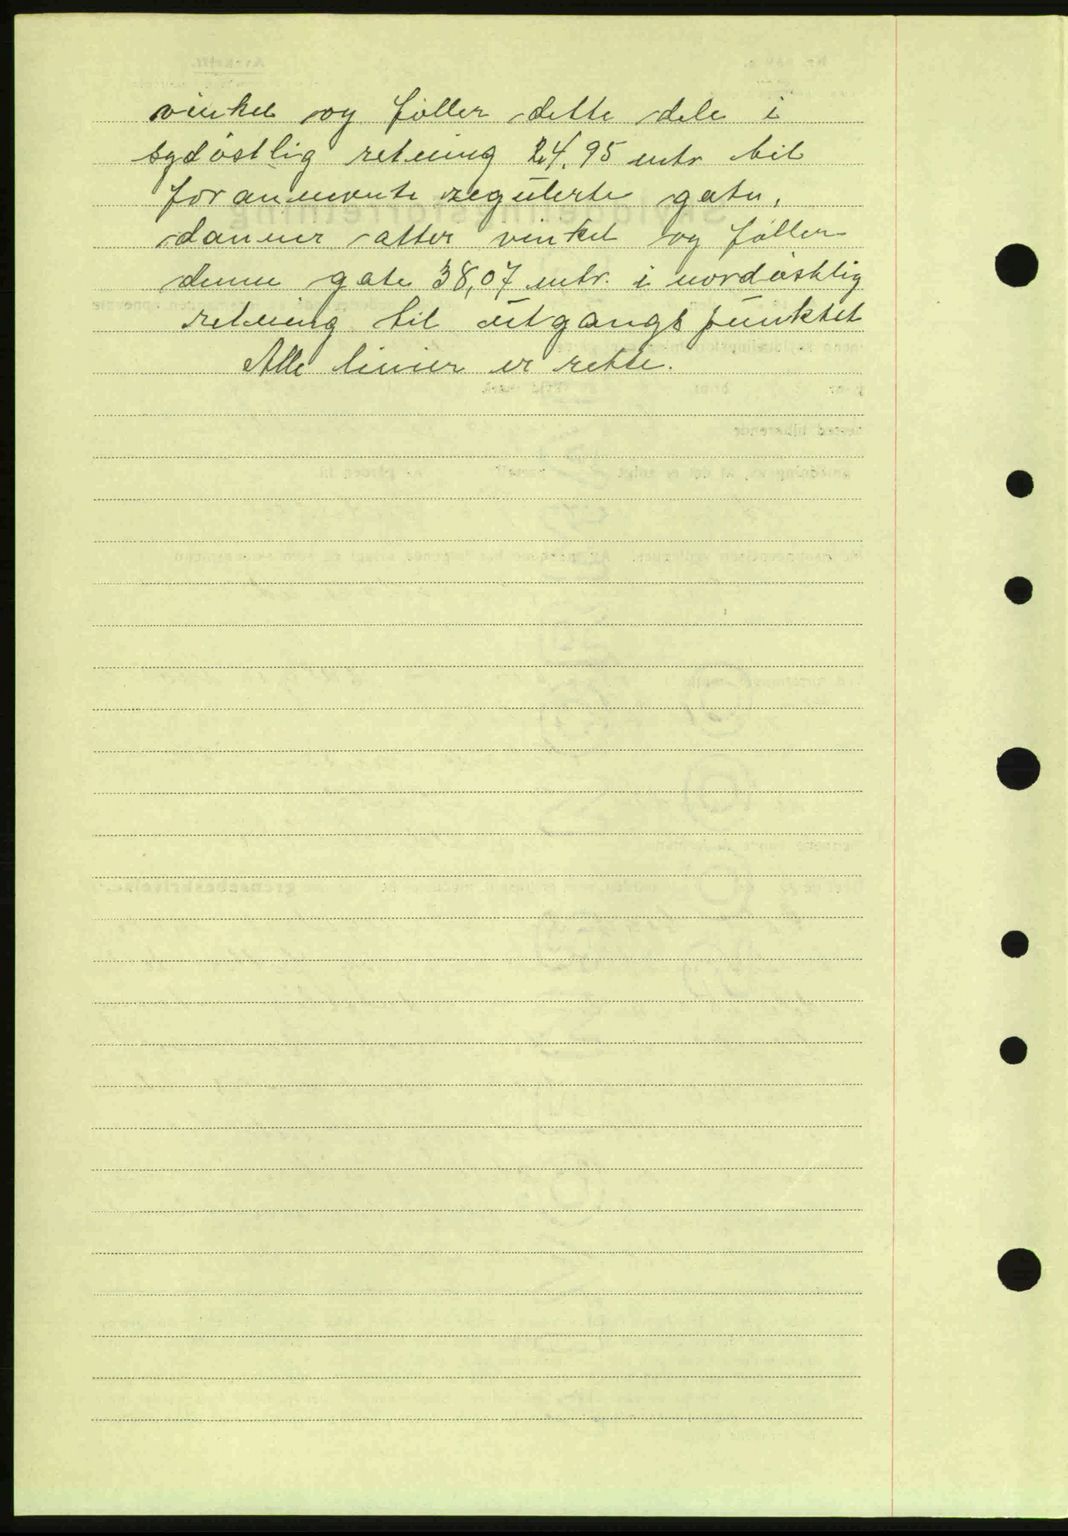 vinkel og føller dette dele i
sydøstlig retning 24,95 mtr til
forannevnte regulerte gate,
danner atter vinkel og føller
denne gate 38,07 mtr. i nordøstlig
retning til utgangspunktet
Alle linier er rette.